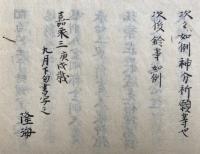 次又如例神分祈願等也
次後鈴等如例
嘉永三庚戌歳
九月下旬書写之
隆海